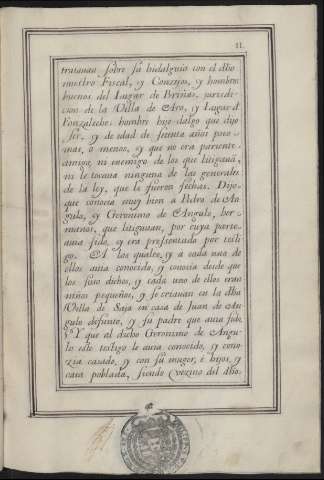 11
tratauan sobre su hidalguia con el dho
nuestro Fiscal, y Conzejos, y hombres
buenos del Lugar de Briñas, jurisdi-
cion de la Villa de Aro, y Lugar de
Fonzaleche. hombre hijo dalgo que dijo
ser, y de edad de setenta años poco
mas, o menos, y que no era pariente
amigo, ni enemigo de los que litigauã,
ni le tocaua ninguna de las generales
de la ley, que le fueron fechas. Dijo
que conocia muy bien a Pedro de An
gulo, y Geronimo de Angulo, her-
manos, que litiguuan, por cuya parte
auia sido, y era presentado por testi
go. A los quales, y a cada uno de
ellos auia conocido, y conocia desde que
los suso dichos, y cada uno de ellos eran
niños pequeños, y se criauan en la dha
Villa de Saja en casa de Juan de An
gulo defunto, y su padre que auia sido,
Y que al dicho Geronimo de Angu-
lo este testigo le auia conocido, y cono-
zia casado, y con su muger, e hijos, y
casa poblada, siendo vezino del dho